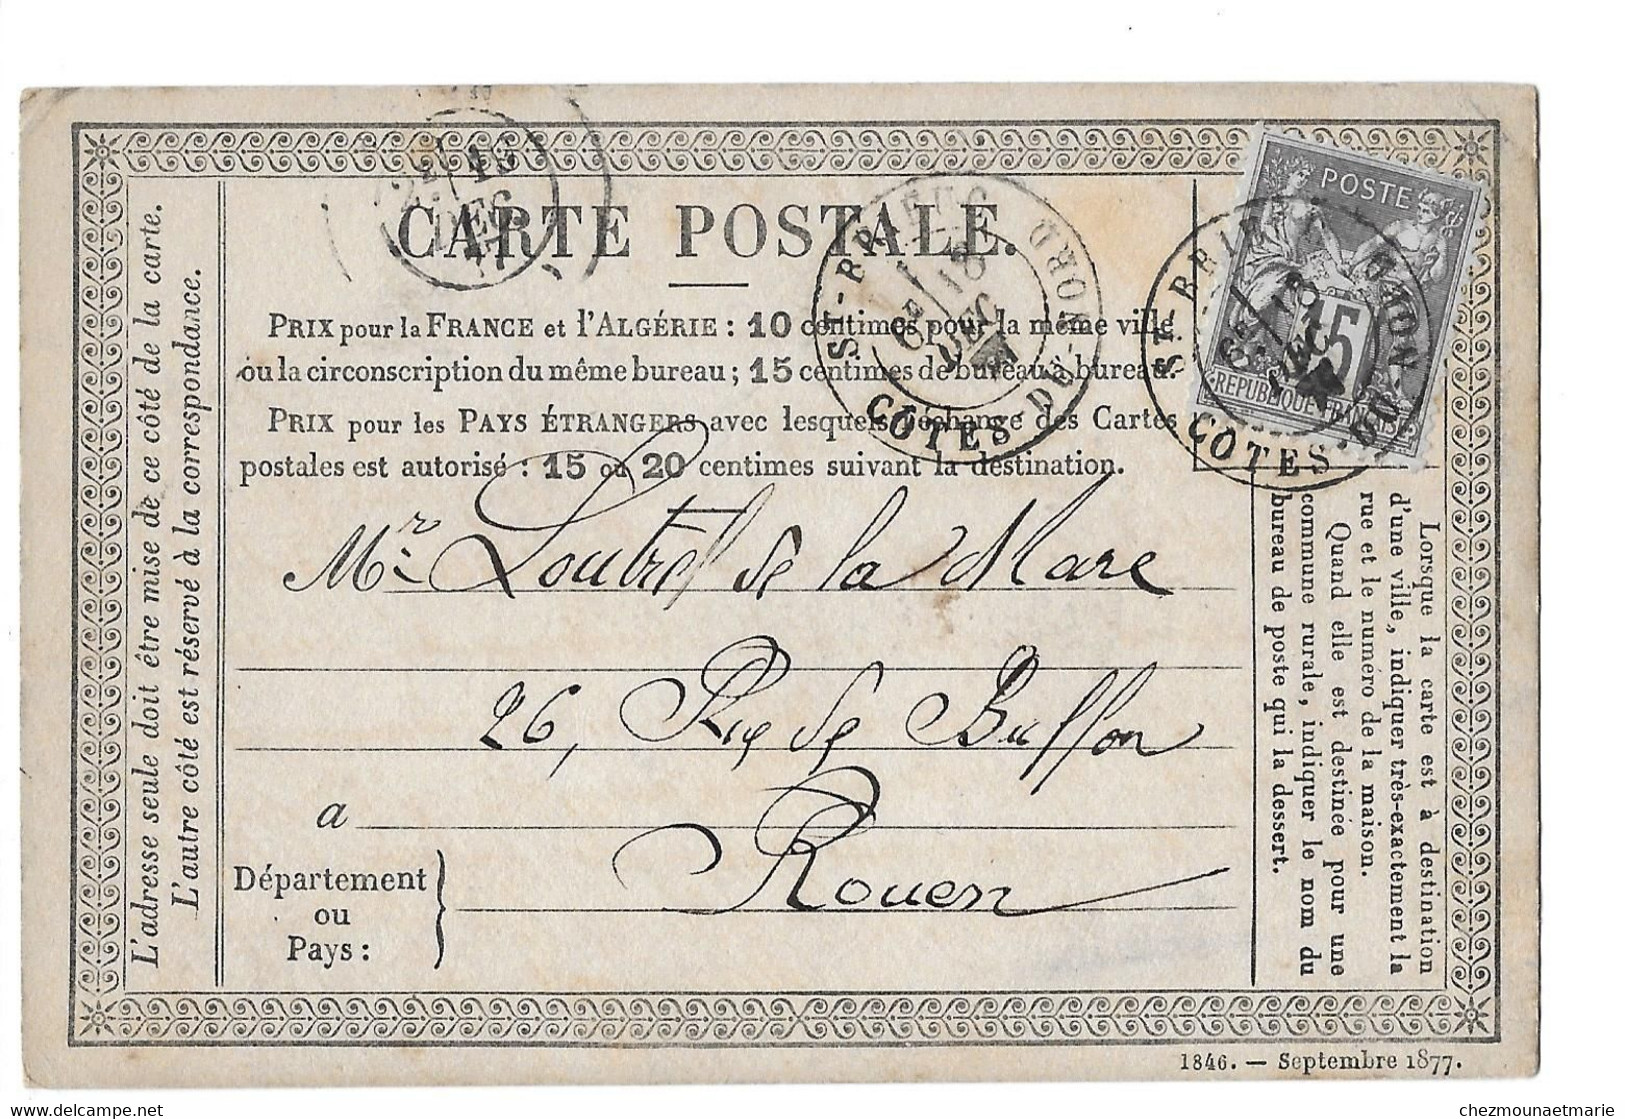 CARTE POSTALE.
PRIX pour la FRANCE et l'ALGÉRIE : 10 centimes pour la même ville
ou la circonscription du même bureau ; 15 centimes de bureau à bureau.
PRIX pour les PAYS ÉTRANGERS avec lesquels l'échange des Cartes
postales est autorisé : 15 ou 20 centimes suivant la destination.
Mr Loutrel de la Mare
26, Rue de Buffon
a
Rouen
Département
ou
Pays :
L'adresse seule doit être mise de ce côté de la carte.
L'autre côté est réservé à la correspondance.
POSTE
15
REPUBLIQUE FRANCAISE
ST-BRIEUC
6E 18
DEC
COTES-DU-NORD
ST-BRIEUC
6E 18
DEC
COTES-DU-NORD
2E
DEC
77
Lorsque la carte est à destination
d'une ville, indiquer très-exactement la
rue et le numéro de la maison.
Quand elle est destinée pour une
commune rurale, indiquer le nom du
bureau de poste qui la dessert.
1846. — Septembre 1877.
delcampe.net
chezmounaetmarie